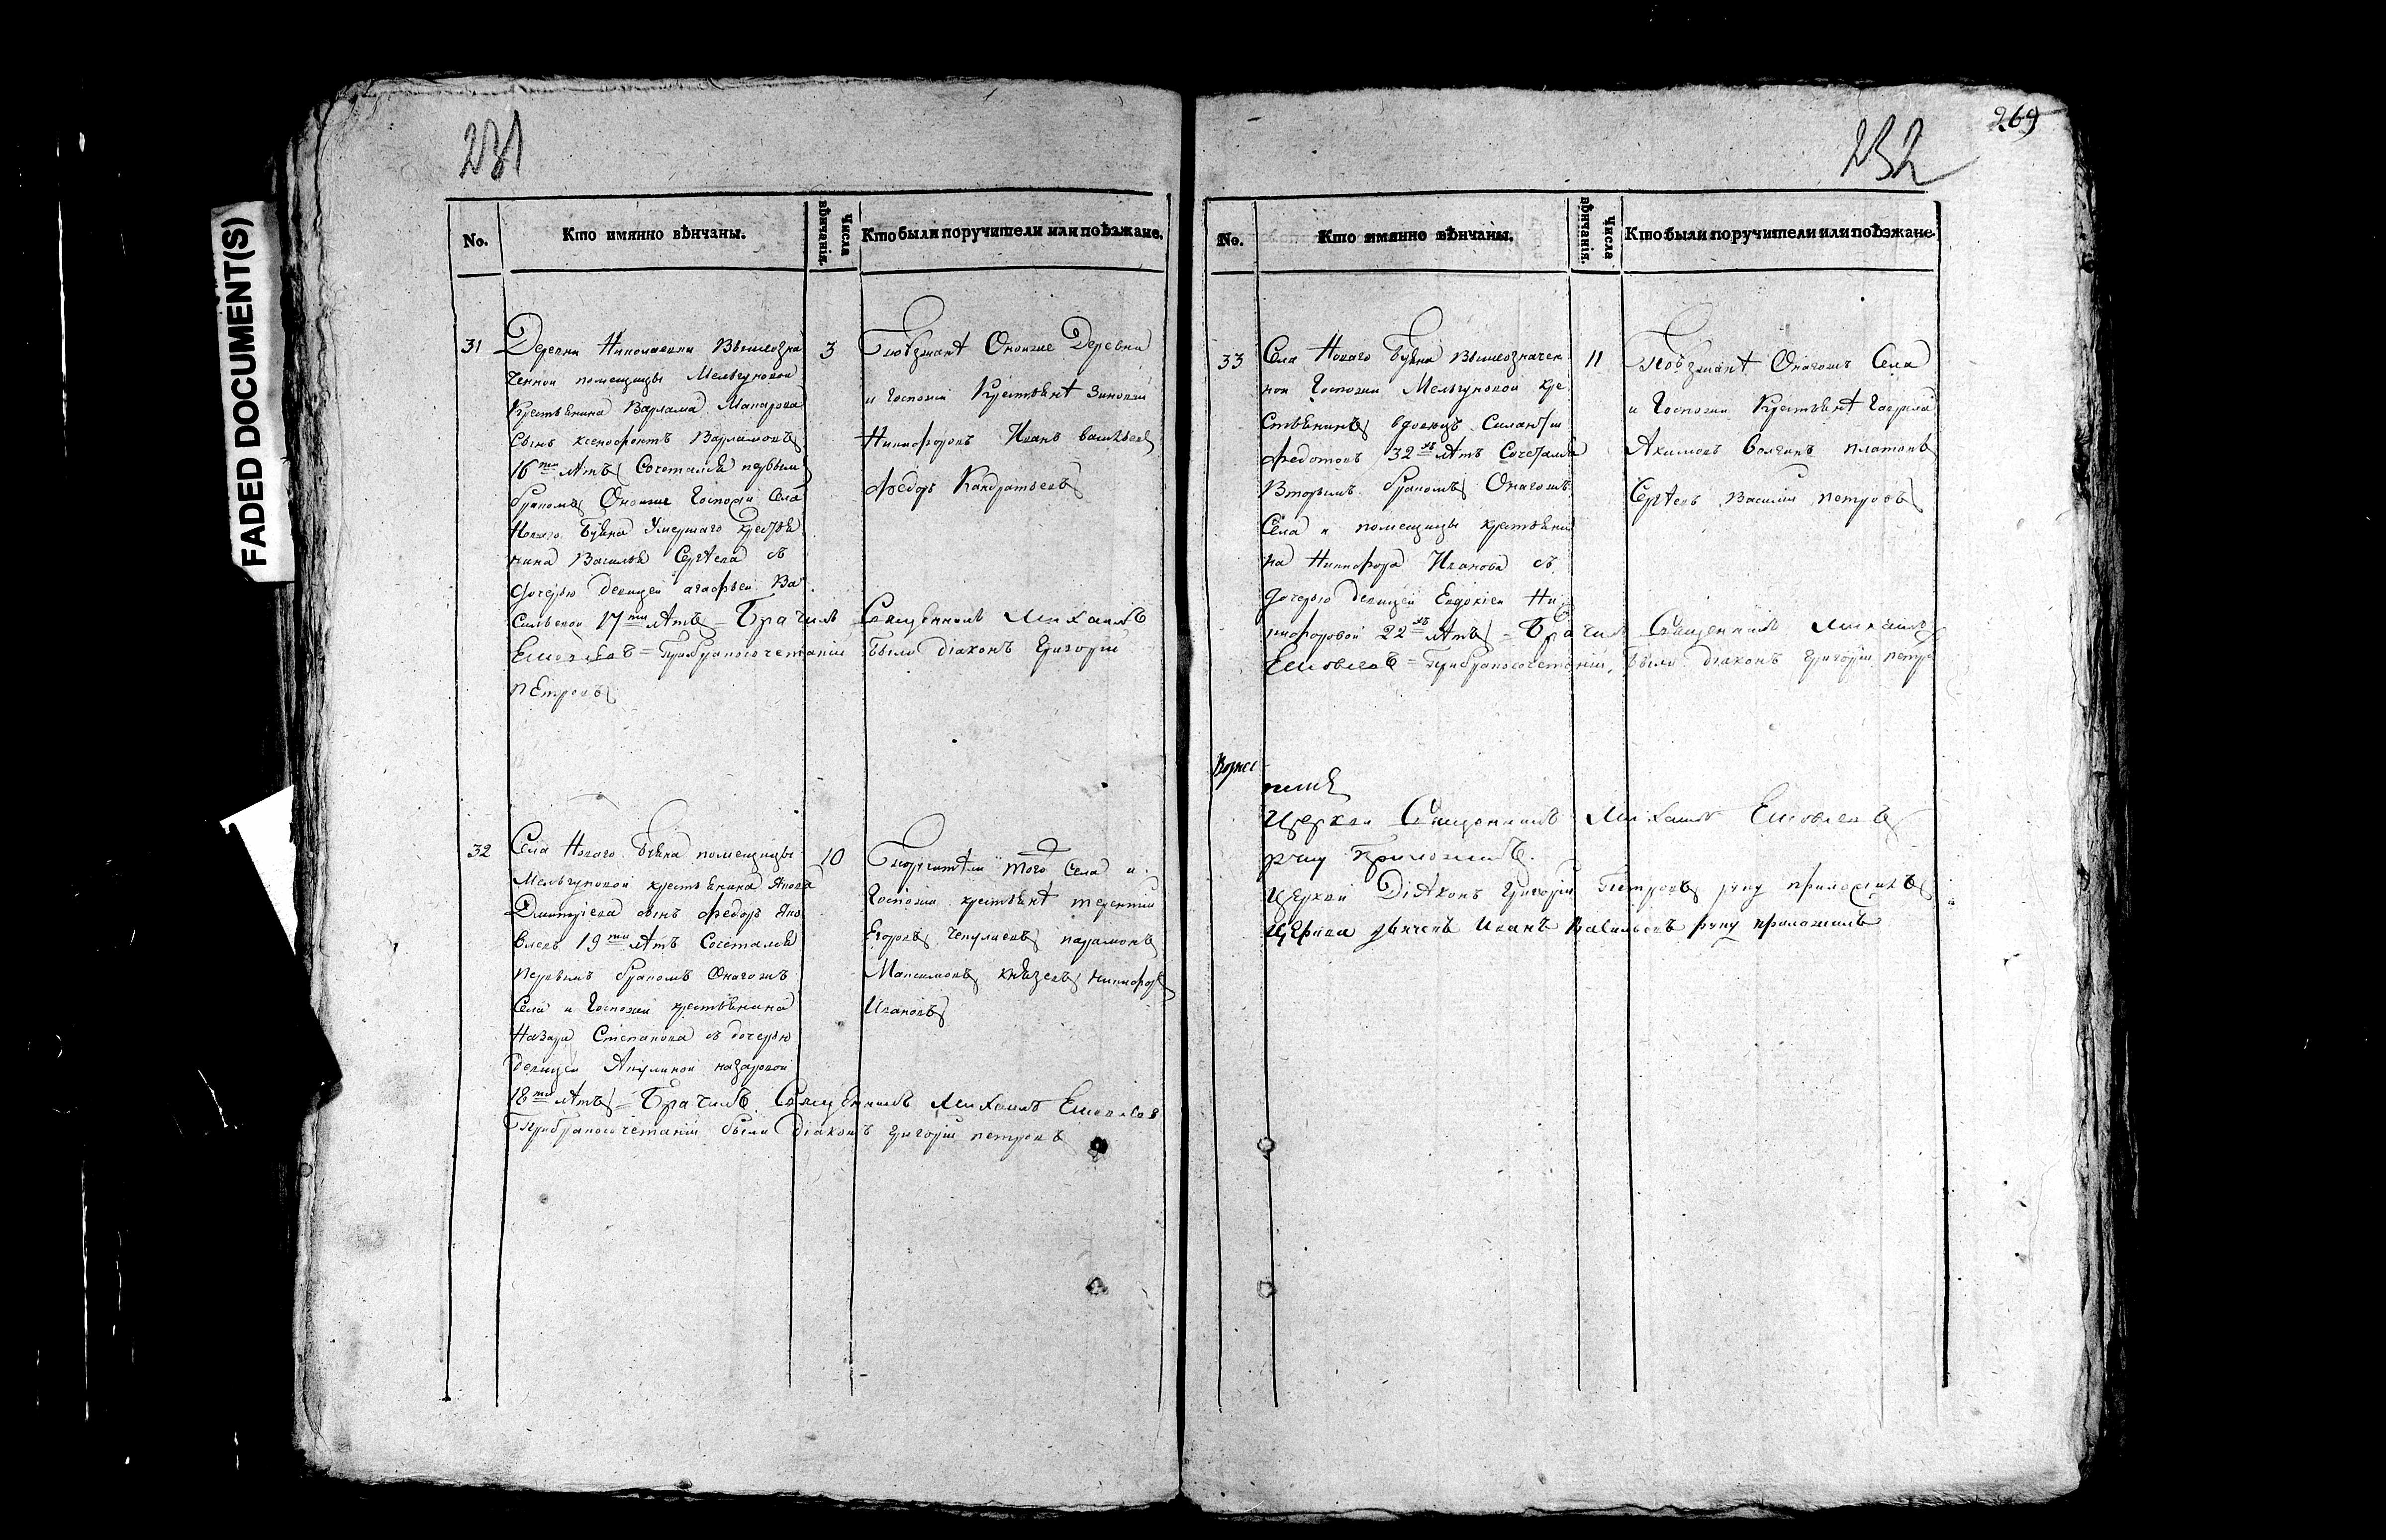 FADED DOCUMENT(S)
231
No.
Кто имянно вѣнчаны.
Числа вѣнчанія.
Кто были поручители или поѣзжане.
31
Деревни Николаевки Вышеозна
ченной помещицы Мельгуновой
Крестьянина Варлама Макарова
Сынъ ксенофонтъ Варламовъ
16ти лѣтъ Сочетался первымъ
бракомъ Оноиже Госпожи Села
Новаго Буяна Умершаго крестья
нина Василья Сергѣева съ
дочерью девицей агафьей Ва
сильевой 17ти лѣтъ = Брачилъ Священникъ Михаилъ
= Прибракосочетаніи былъ діаконъ Григорій
пЕтровъ
3
Поѣзжанѣ Оноиже Деревни
и госпожи Крестьянѣ Зиновий
Никифоровъ Иванъ васильевъ
федоръ Кандратьевъ
32
Села Новаго Буяна помещицы
Мельгуновой крестьянина Якова
Дмитріева сынъ федоръ Яко
влевъ 19ти лѣтъ Сочетался
первымъ бракомъ Онагожъ
Села и Госпожи крестьянина
Назара Степанова съ дочерью
девицей Акулиной назаровой
18ти лѣтъ = Брачилъ Священникъ Михаилъ
Прибракосочетаніи былъ Діаконъ григорій петровъ
10
Поручители того Села и
Госпожи крестьянѣ терентий
Егоровъ парамонъ
Максимовъ князевъ никифоръ
Ивановъ
232
269
No.
Кто имянно вѣнчаны.
Числа вѣнчанія.
Кто были поручители или поѣзжане.
33
Села Новаго Буяна вышеозначен
ной Госпожи Мельгуновой кре
стьянинъ вдовецъ Силантий
федотовъ 32хъ лѣтъ Сочетался
Вторымъ бракомъ Онагожъ
Села и помещицы крестьяни
на Никифора Иванова съ
дочерью девицей Евдокіей Ни
кифоровой 22хъ лѣтъ = Брачилъ Священникъ Михаилъ
= Прибракосочетаніи былъ діаконъ григорій петро
11
Поѣзжанѣ Онагожъ Села
и Госпожи Крестьянѣ Гаврила
Акимовъ волгинъ платонъ
Сергѣевъ Василій петровъ
Церкви Священникъ Михаилъ
руку Приложилъ.
Церкви Діяконъ григорій Петровъ руку приложилъ
Церкви Иванъ Васильевъ руку приложилъ